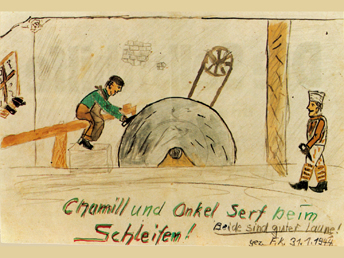 Chamill und Onkel Serf beim
Schleifen!
Beide sind guter Laune!
gez. F.K. 31.1.1944